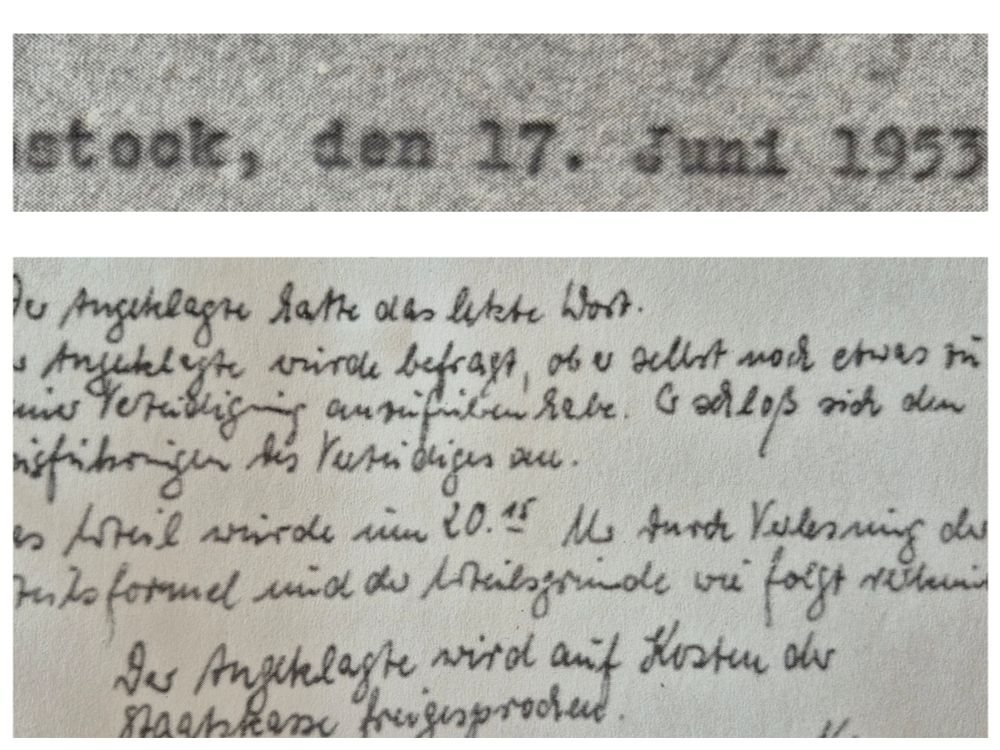 stock, den 17. Juni 1953
Der Angeklagte hatte das letzte Wort.
Angeklagte wurde befragt, ob er selbst noch etwas zu
einer Verteidigung anzuführen habe. Er schloß sich den
usführungen des Verteidigers an.
as Urteil wurde um 20.15 Uhr durch Verlesung der
teilsformel und der Urteilsgründe wie folgt verkün
Der Angeklagte wird auf Kosten der
Staatskasse freigesprochen.